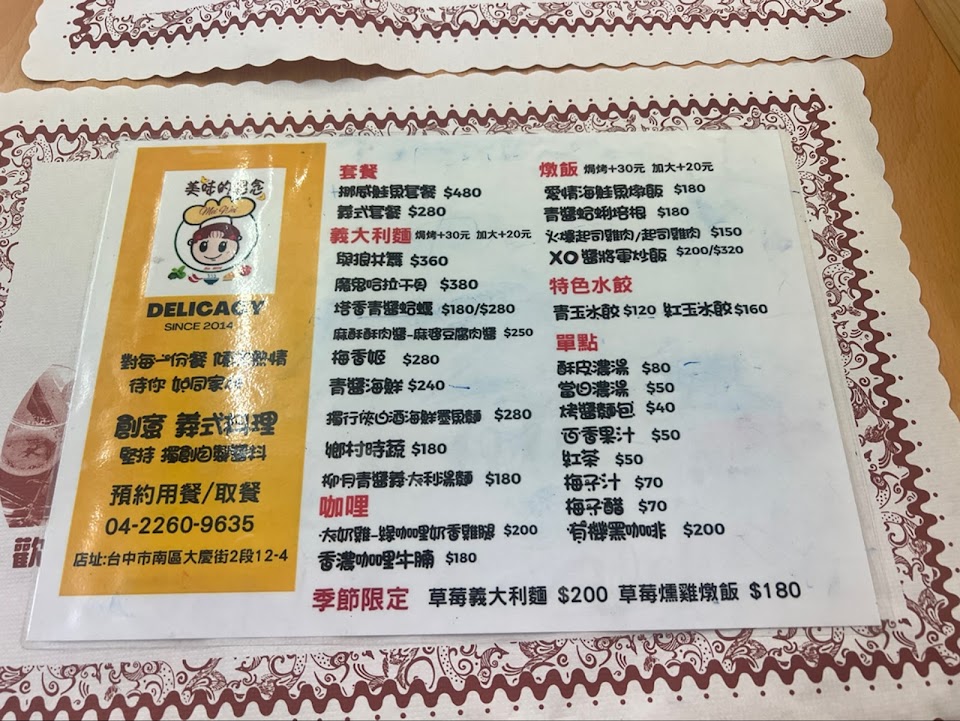 美味的
DELICACY
SINCE 2014
對每一份餐
待你 如同家
創意 義式料理
堅持 獨創自製醬料
預約用餐/取餐
04-2260-9635
店址:台中市南區大慶街2段12-4
歡
套餐
挪威鮭魚套餐 $480
義式套餐 $280
義大利麵 焗烤+30元 加大+20元
與狼共舞 $360
魔鬼哈拉干貝 $380
塔香青醬蛤蠣 $180/$280
麻酥酥肉醬-麻婆豆腐肉醬 $250
梅香姬 $280
青醬海鮮 $240
獨行俠白酒海鮮墨魚麵 $280
鄉村時蔬 $180
柳月青醬義大利湯麵 $180
咖哩
大奶雞-綠咖哩奶香雞腿 $200
香濃咖哩牛腩 $180
燉飯 焗烤+30元 加大+20元
愛情海鮭魚燉飯 $180
青醬蛤蜊培根 $180
火爆起司雞肉/起司雞肉 $150
XO醬將軍炒飯 $200/$320
特色水餃
青玉水餃 $120 紅玉水餃 $160
單點
酥皮濃湯 $80
當日濃湯 $50
烤醬麵包 $40
百香果汁 $50
紅茶 $50
梅子汁 $70
梅子醋 $70
有機黑咖啡 $200
季節限定 草莓義大利麵 $200 草莓燻雞燉飯 $180